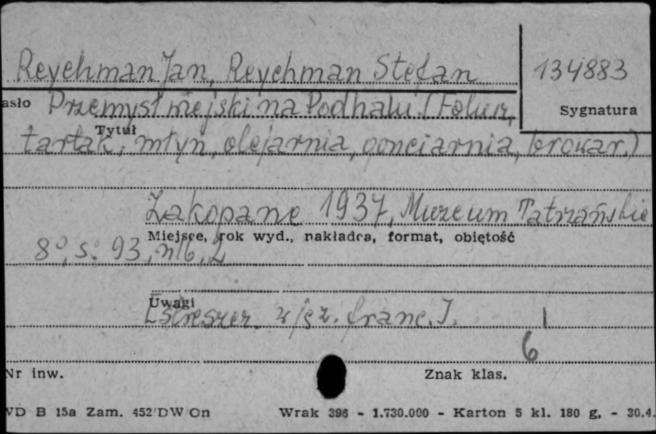 Reychman Jan, Reychman Stefan
134883
asło Przemysł wiejski na Podhalu. (Folusz,
Sygnatura
Tytuł
tartak, młyn, olejarnia, gonciarnia, browar.)
Zakopane 1937, Muzeum Tatrzańskie
Miejsce, rok wyd., nakładca, format, obiętość
8°, s. 93, nlb, 2
Uwagi
[Streszcz. w jęz. franc.].
1
6
Nr inw.
Znak klas.
VD B 15a Zam. 452/DW/On Wrak 396 - 1.730.000 - Karton 5 kl. 180 g. - 30.4.